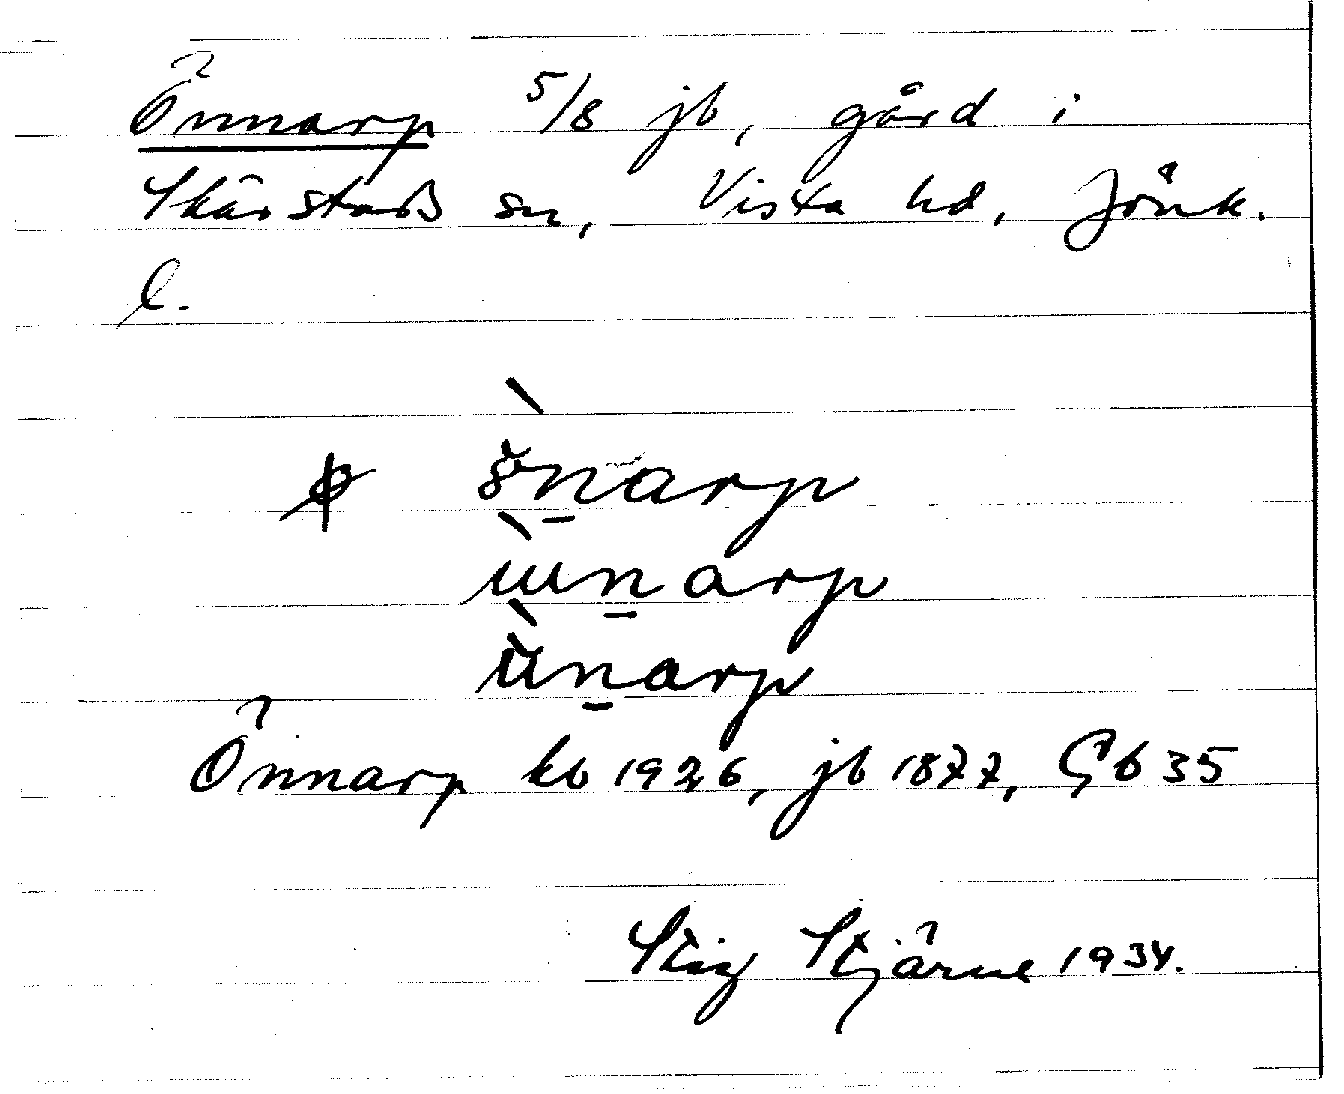 Önnarp 5/8 jb, gård i
Skärstads sn, Vista hd, Jönk.
l.
önarp
ɯnarp
ùnarp
Önnarp kb 1926, jb 1877, Gb 35
Stig Stjärne 1934.